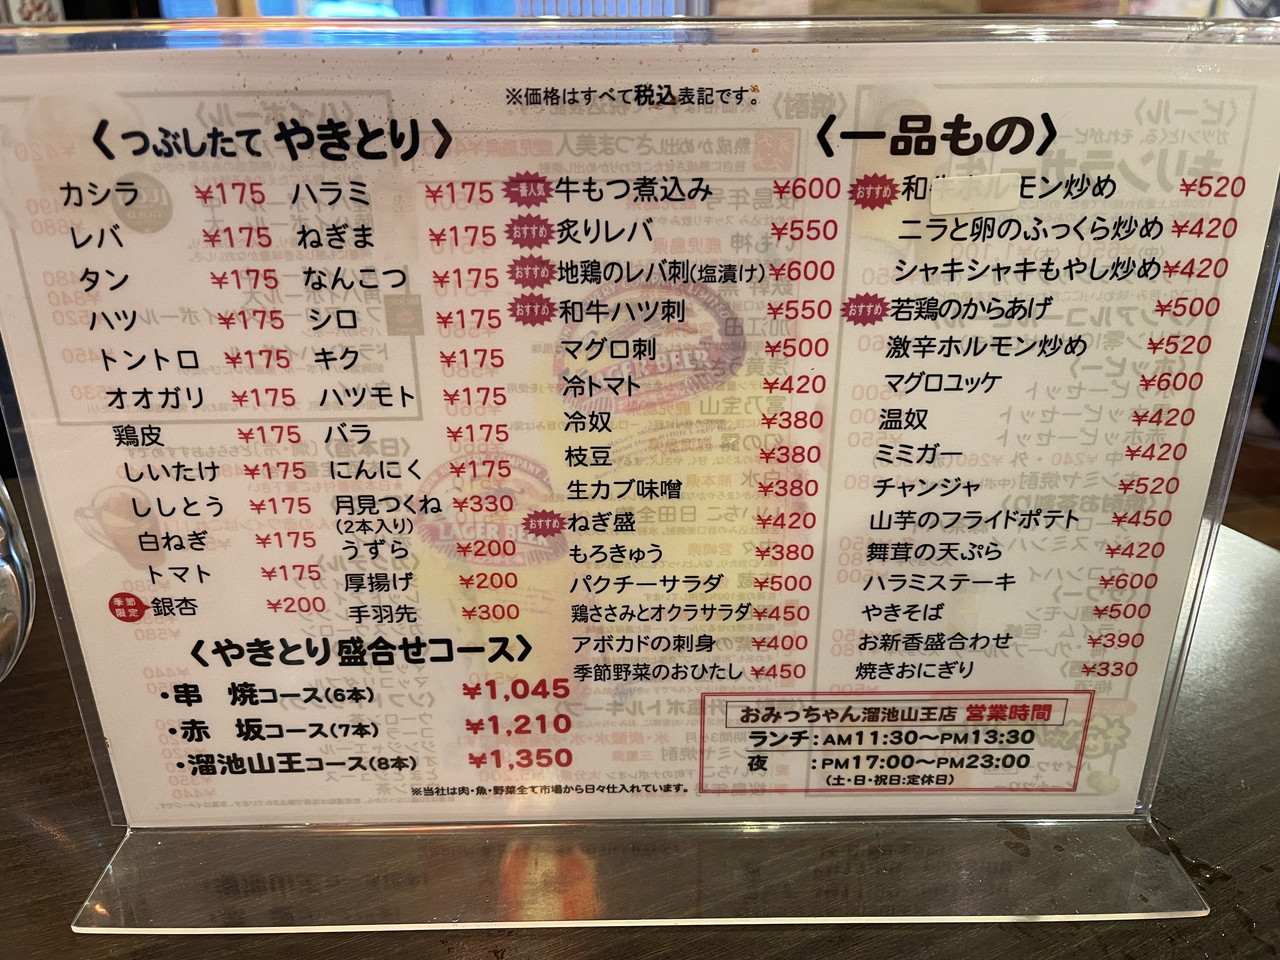 ※価格はすべて税込表記です。
〈つぶしたて やきとり〉
カシラ ¥175
レバ ¥175
タン ¥175
ハツ ¥175
トントロ ¥175
オオガリ ¥175
鶏皮 ¥175
しいたけ ¥175
ししとう ¥175
白ねぎ ¥175
トマト ¥175
季節限定 銀杏 ¥200
ハラミ ¥175
ねぎま ¥175
なんこつ ¥175
シロ ¥175
キク ¥175
ハツモト ¥175
バラ ¥175
にんにく ¥175
月見つくね ¥330
(2本入り)
うずら ¥200
厚揚げ ¥200
手羽先 ¥300
〈やきとり盛合せコース〉
・串 焼コース(6本) ¥1,045
・赤 坂コース(7本) ¥1,210
・溜池山王コース(8本) ¥1,350
※当社は肉・魚・野菜全て市場から日々仕入れています。
〈一品もの〉
一番人気 牛もつ煮込み ¥600
おすすめ 炙りレバ ¥550
おすすめ 地鶏のレバ刺(塩漬け) ¥600
おすすめ 和牛ハツ刺 ¥550
マグロ刺 ¥500
冷トマト ¥420
冷奴 ¥380
枝豆 ¥380
生カブ味噌 ¥380
おすすめ ねぎ盛 ¥420
もろきゅう ¥380
パクチーサラダ ¥500
鶏ささみとオクラサラダ ¥450
アボカドの刺身 ¥400
季節野菜のおひたし ¥450
おすすめ 和 モン炒め ¥520
ニラと卵のふっくら炒め ¥420
シャキシャキもやし炒め ¥420
おすすめ 若鶏のからあげ ¥500
激辛ホルモン炒め ¥520
マグロユッケ ¥600
温奴 ¥420
ミミガー ¥420
チャンジャ ¥520
山芋のフライドポテト ¥450
舞茸の天ぷら ¥420
ハラミステーキ ¥600
やきそば ¥500
お新香盛合わせ ¥390
焼きおにぎり ¥330
おみっちゃん溜池山王店 営業時間
ランチ:AM11:30〜PM13:30
夜 :PM17:00〜PM23:00
(土・日・祝日:定休日)